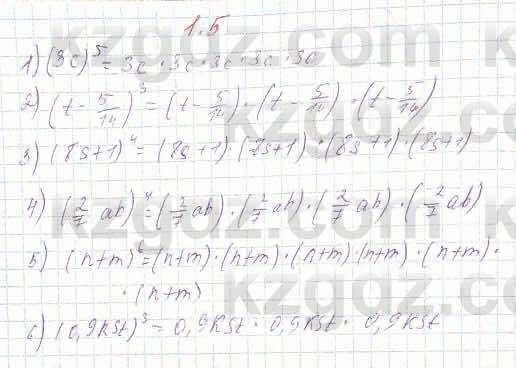 1.5
1) (3c)⁵ = 3c · 3c · 3c · 3c · 3c
2) (t - 5/14)³ = (t - 5/14) · (t - 5/14) · (t - 5/14)
3) (8s+1)⁴ = (8s+1) · (8s+1) · (8s+1) · (8s+1)
4) (2/7 ab)⁴ = (2/7 ab) · (2/7 ab) · (2/7 ab) · (2/7 ab)
5) (n+m)⁶ = (n+m) · (n+m) · (n+m) · (n+m) · (n+m) ·
· (n+m)
6) (0,9kst)³ = 0,9kst · 0,9kst · 0,9kst
kzgdz.com
kzgdz.com
kzgdz.com